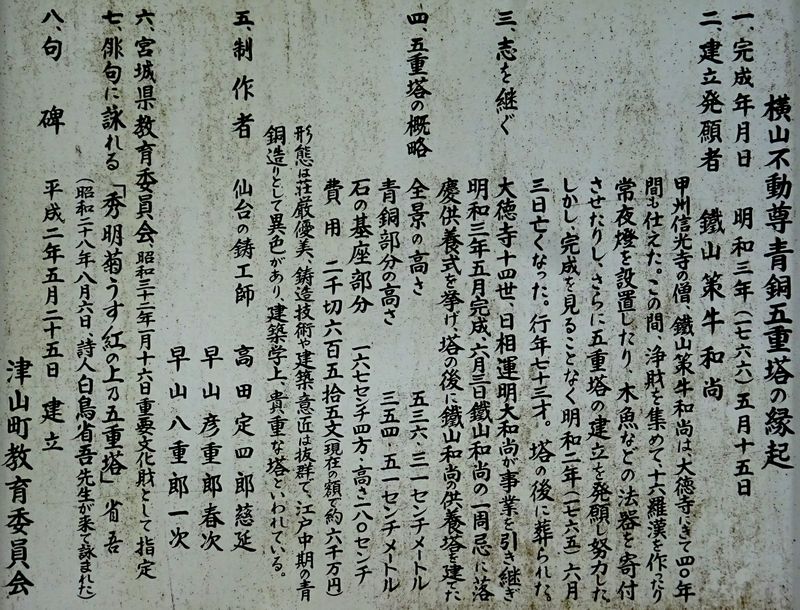 横山不動尊青銅五重塔の縁起
一、完成年月日　明和三年(一七六六)五月十五日
二、建立発願者　鐵山策牛和尚
甲州信光寺の僧、鐵山策牛和尚は、大徳寺にきて四〇年
間も仕えた。この間、浄財を集めて、十六羅漢を作ったり
常夜燈を設置したり、木魚などの法器を寄付
させたりし、さらに五重塔の建立を発願し努力した
しかし、完成を見ることなく明和二年(一七六五)六月
三日亡くなった。行年七十三才。塔の後に葬られた。
三、志を継ぐ
大徳寺十四世、日相運明大和尚が事業を引き継ぎ
明和三年五月完成、六月三日鐵山和尚の一周忌に落
慶供養式を挙げ、塔の後に鐵山和尚供養塔を建てた
四、五重塔の概略
全景の高さ　五三六、三一センチメートル
青銅部分の高さ　三五四、五一センチメートル
石の基座部分　一六七センチ四方・高さ一八〇センチ
費用　二千切六百五拾五文(現在の額で約六千万円)
形態は荘厳優美、鋳造技術や建築意匠は抜群で、江戸中期の青
銅造りとして異色があり、建築学上、貴重な塔といわれている。
五、制作者　仙台の鋳工師　高田定四郎慈延
早山彦重郎春次
早山八重郎一次
六、宮城県教育委員会、昭和三十二年一月十六日重要文化財として指定
七、俳句に詠れる「秀明菊うす紅の上乃五重塔」　省吾
(昭和二十八年八月六日、詩人白鳥省吾先生が来て詠まれた)
八、句碑　平成二年五月二十五日　建立
津山町教育委員会